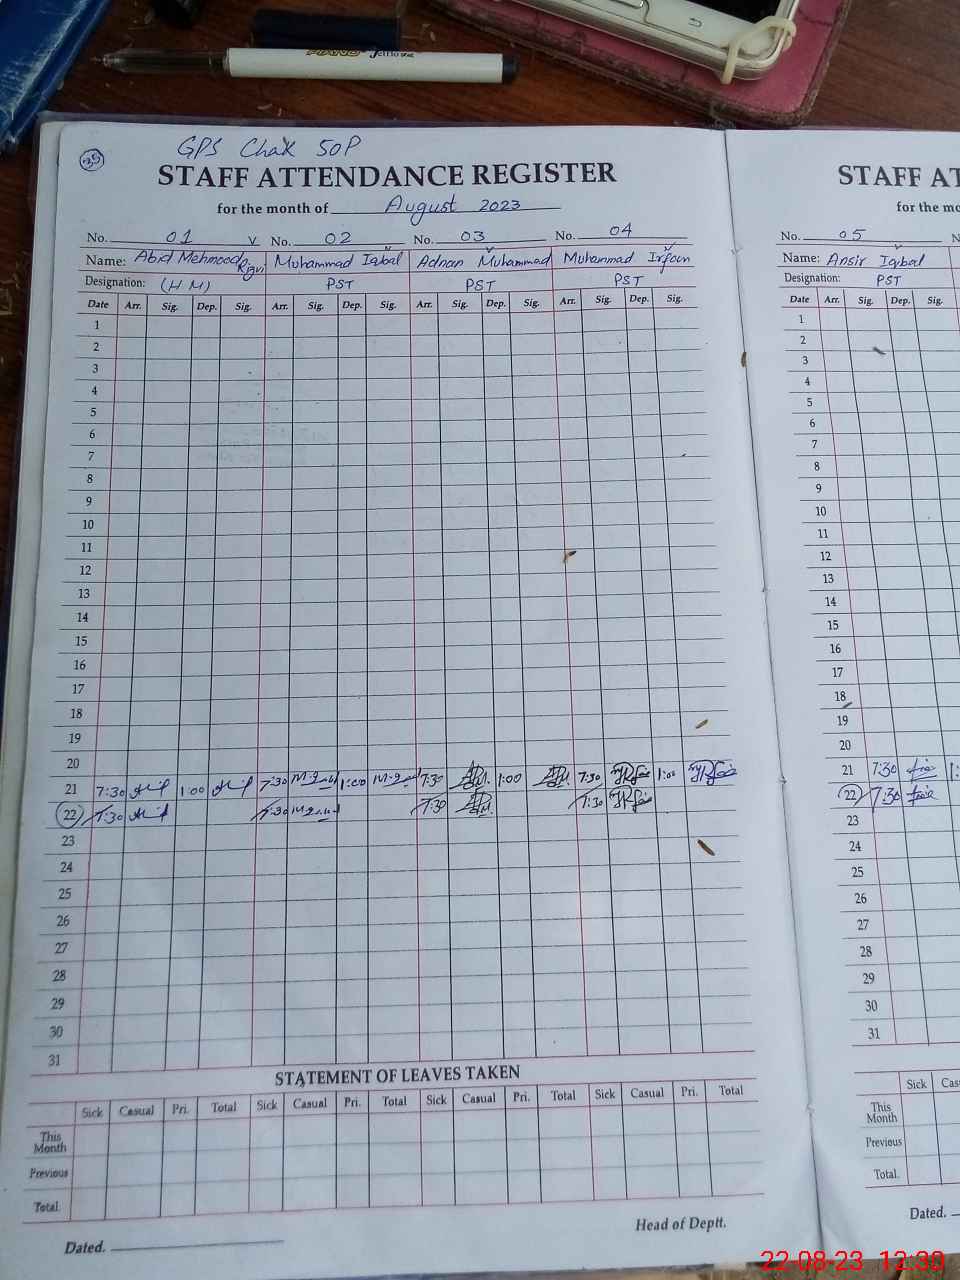 PIANO
35
GPS Chak 50P
STAFF ATTENDANCE REGISTER
for the month of August 2023
No. 01 No. 02 No. 03 No. 04
Name: Abid Mehmood Rizvi Muhammad Iqbal Adnan Muhammad Muhammad Irfan
Designation: (HM) PST PST PST
Date Arr. Sig. Dep. Sig. Arr. Sig. Dep. Sig. Arr. Sig. Dep. Sig. Arr. Sig. Dep. Sig.
1
2
3
4
5
6
7
8
9
10
11
12
13
14
15
16
17
18
19
20
21 7:30 1:00 7:30 M.Iqbal 1:00 M.Iqbal 7:30 1:00 7:30 Irfan 1:00 Irfan
22 7:30 7:30 M.Iqbal 7:30 7:30 Irfan
23
24
25
26
27
28
29
30
31
STATEMENT OF LEAVES TAKEN
Sick Casual Pri. Total Sick Casual Pri. Total Sick Casual Pri. Total Sick Casual Pri. Total
This Month
Previous
Total
Dated.
Head of Deptt.
STAFF AT
for the mo
No. 05
Name: Ansir Iqbal
Designation: PST
Date Arr. Sig. Dep. Sig.
1
2
3
4
5
6
7
8
9
10
11
12
13
14
15
16
17
18
19
20
21 7:30
22 7:30
23
24
25
26
27
28
29
30
31
Sick Cas
This Month
Previous
Total.
Dated.
22-08-23 12:30